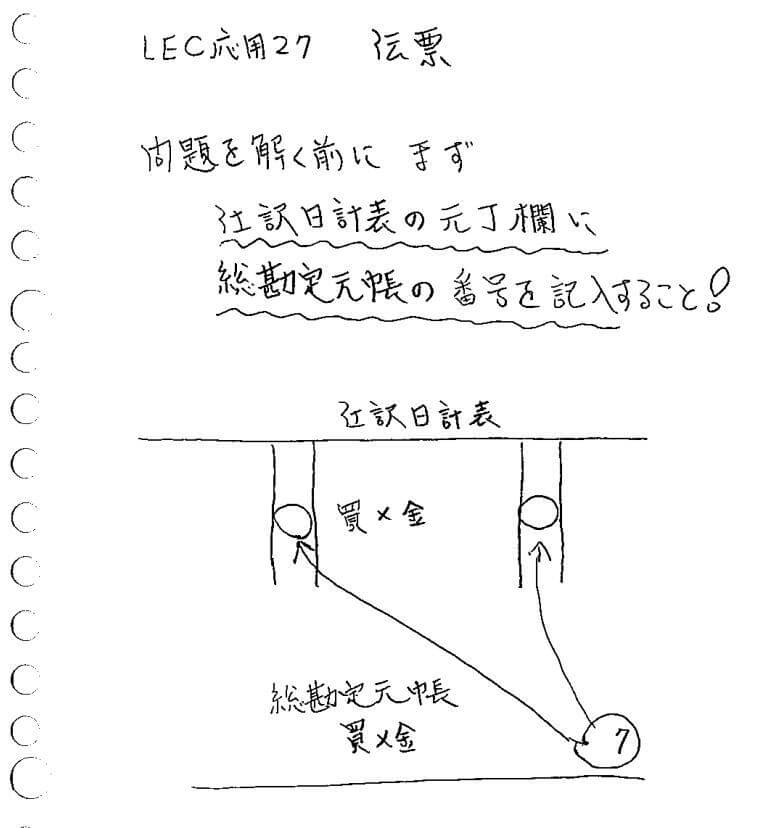 LEC応用27 伝票
問題を解く前に まず
仕訳日計表の元丁欄に
総勘定元帳の番号を記入すること!
仕訳日計表
買×金
総勘定元帳
買×金
7